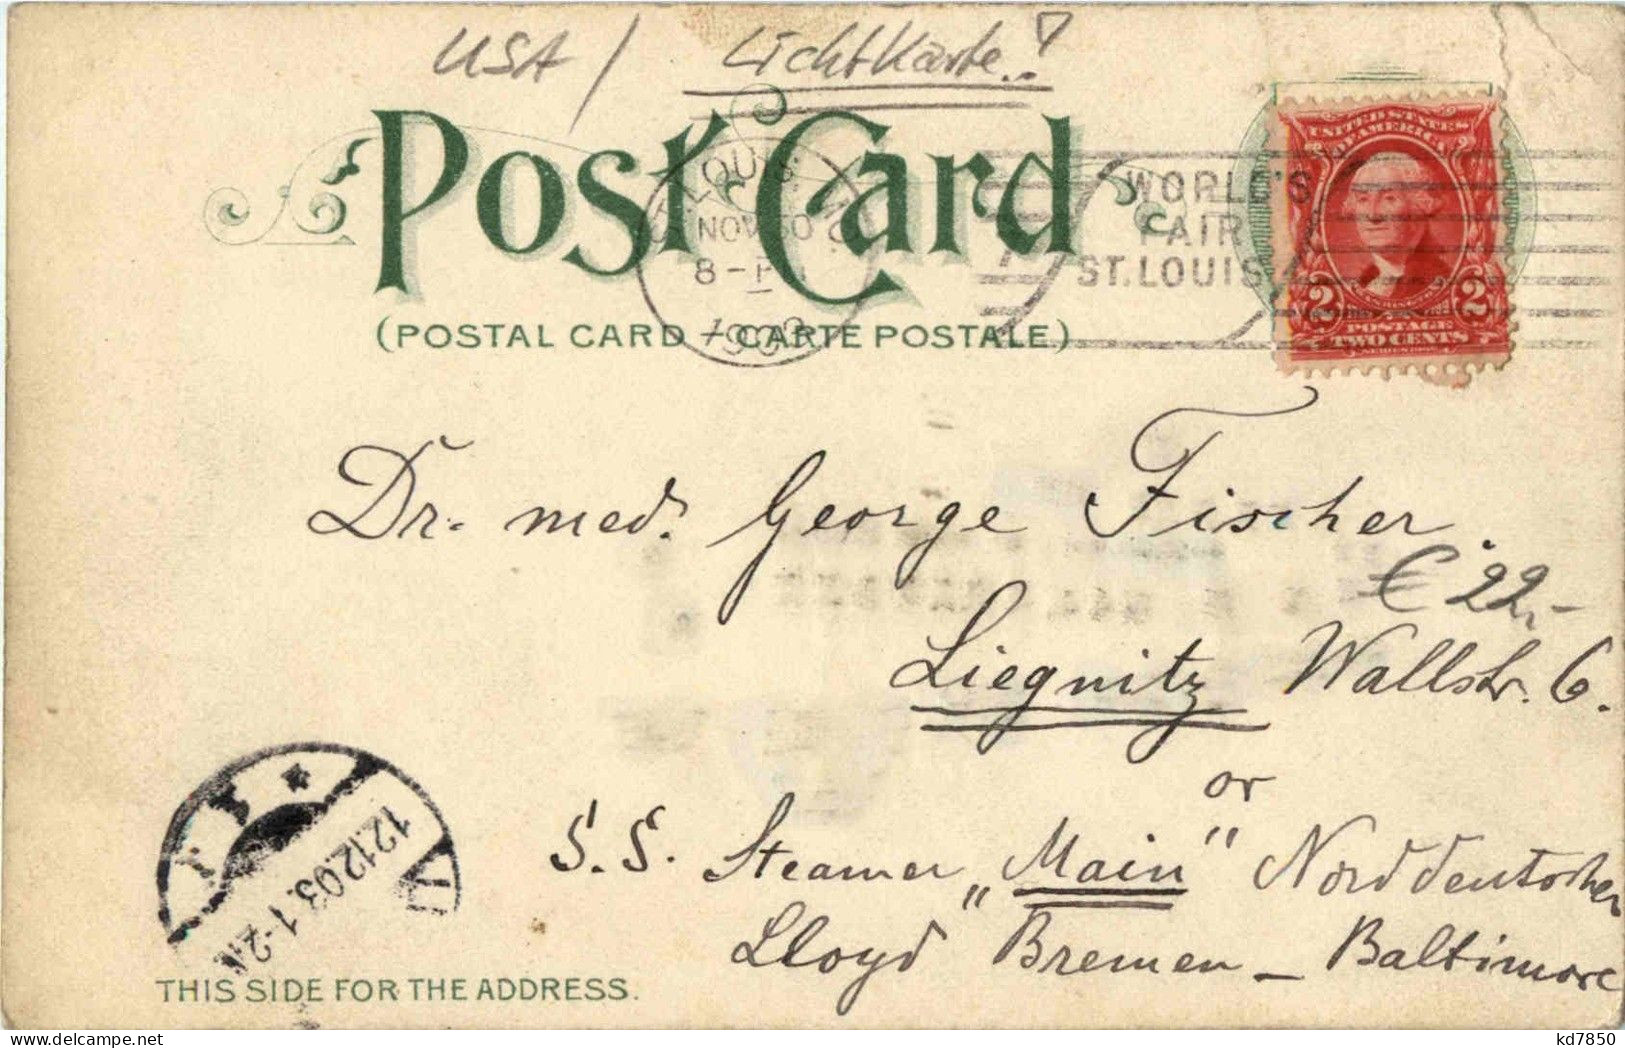 USA / Lichtkarte..!
POST CARD
ST. LOUIS. MO.
NOV 30
8-P
1903
WORLD'S
FAIR
ST. LOUIS
UNITED STATES
OF AMERICA
2 2
POSTAGE
TWO CENTS
(POSTAL CARD – CARTE POSTALE)
Dr. med. George Fischer.
€ 22,-
Liegnitz Wallstr. 6.
or
S.S. Steamer „Main" Norddeutscher
Lloyd Bremen – Baltimore
12.12.03. 1-2N
V
THIS SIDE FOR THE ADDRESS.
kd7850